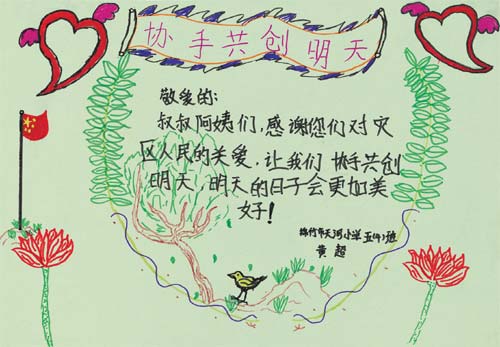 协手共创明天
敬爱的:
叔叔阿姨们,感谢您们对灾
区人民的关爱,让我们协手共创
明天,明天的日子会更加美
好!
绵竹市天河小学五(4)班
黄超